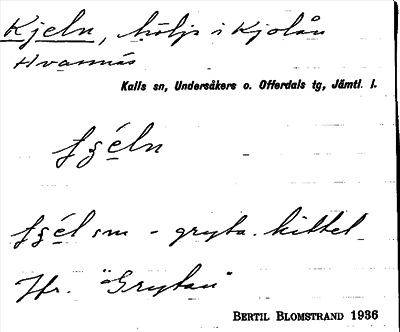 Kjeln, hölja i Kjolån
Hvamnås
Kalls sn, Undersåkers o. Offerdals tg, Jämtl. l.
éln
sm - gryta. kittel
Jfr. "Grytan"
BERTIL BLOMSTRAND 1936